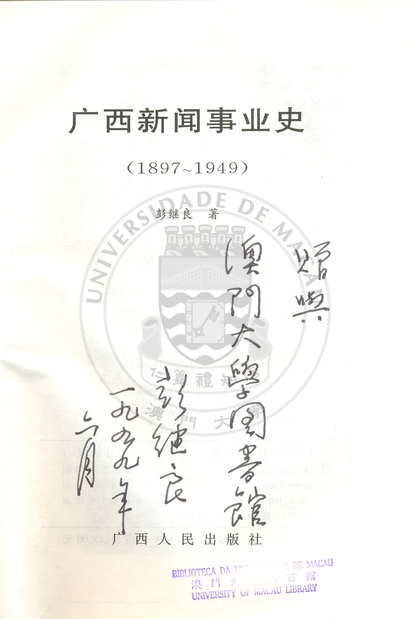 广西新闻事业史
(1897~1949)
彭继良 著
UNIVERSIDADE DE MACAU
仁義禮
澳門大學
贈與
澳门大學图書館
彭继良
一九九九年
六月
广西人民出版社
BIBLIOTECA DA UNIVERSIDADE DE MACAU
澳門大學圖書館
UNIVERSITY OF MACAU LIBRARY